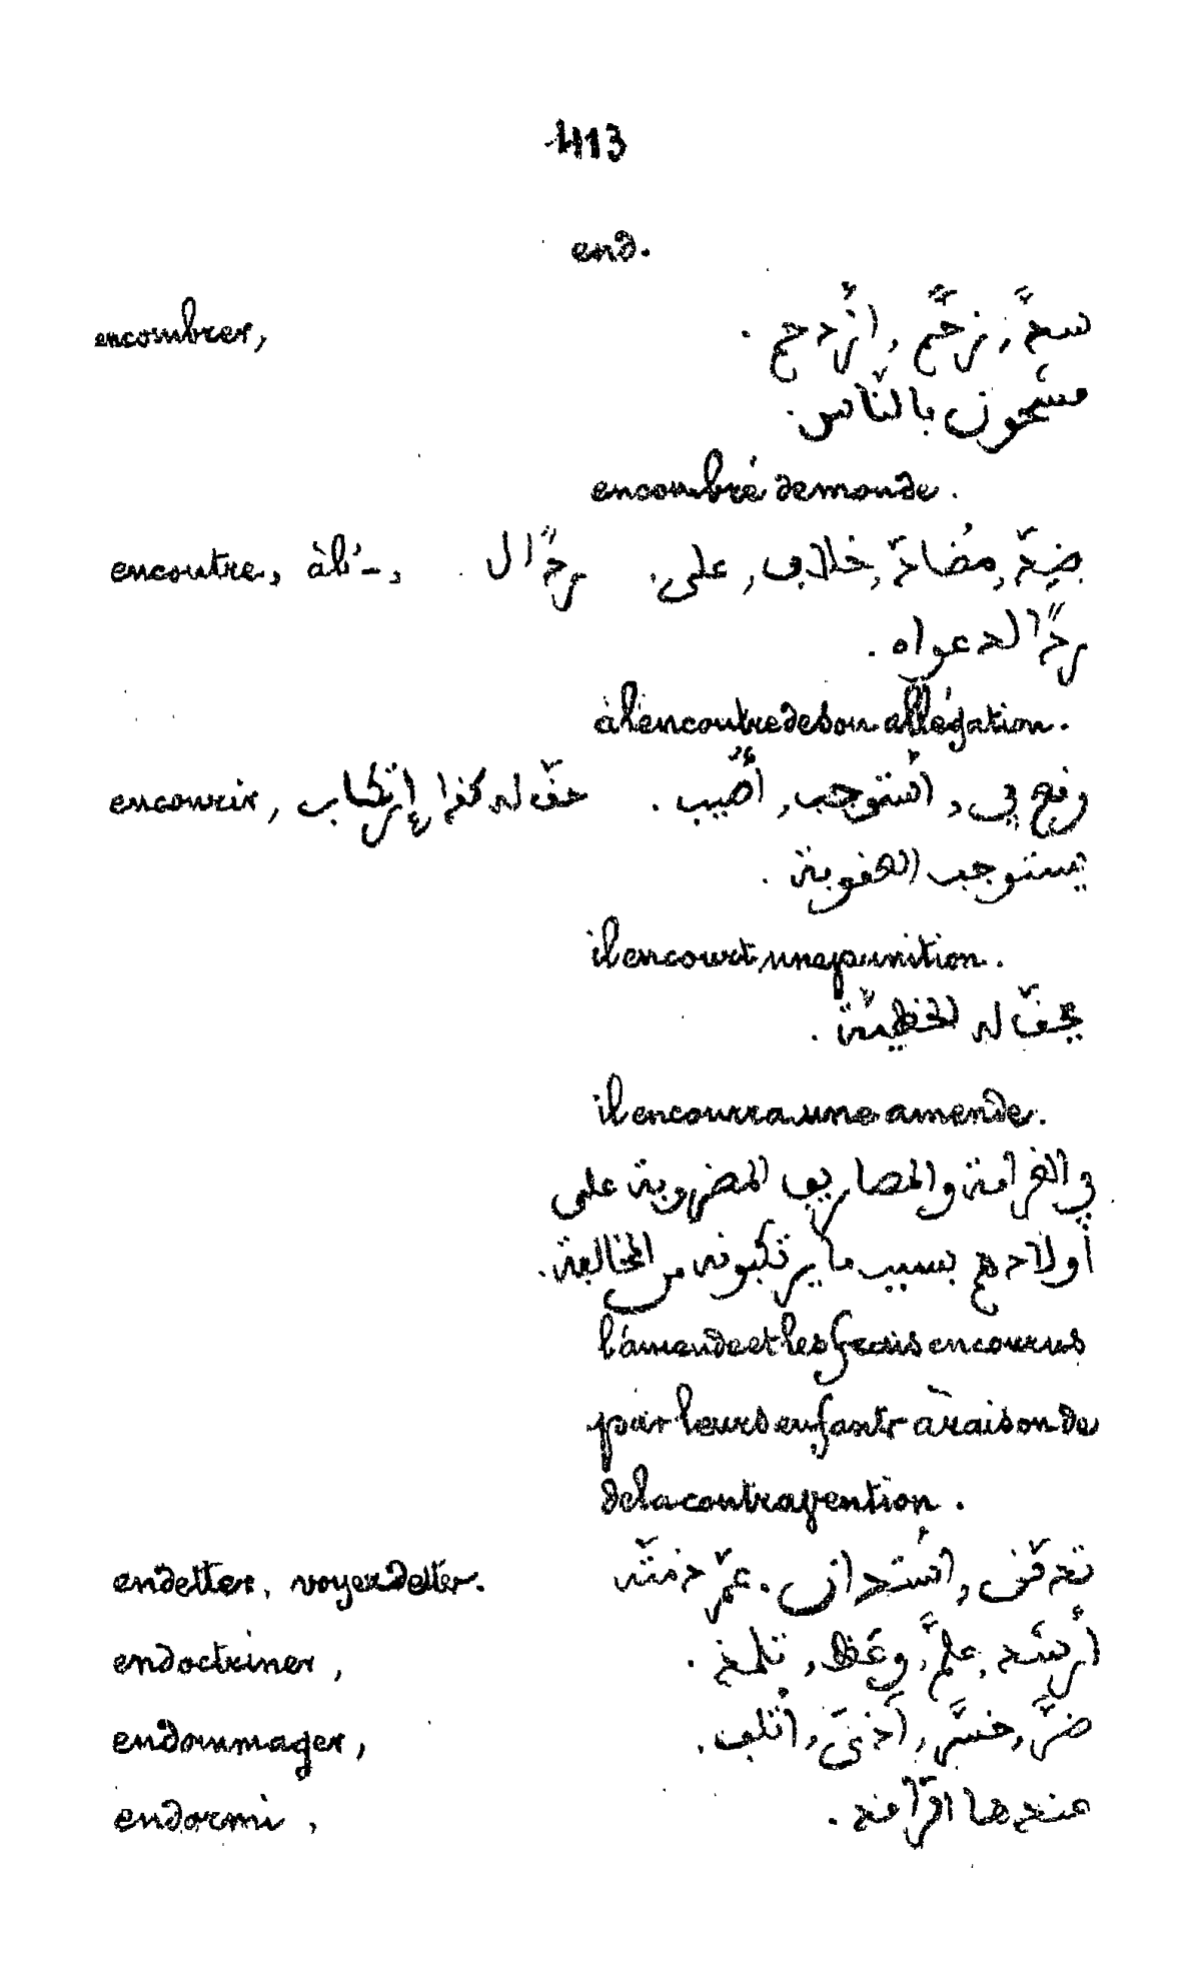 413
end.
encombrer, سدّ, زحّم, ازدحم.
مشحون بالنّاس.
encombré de monde.
encontre, à l'_, ضدّ, مضادّ, خلاف, على. ردًّا ل
ردًّا لدعواه.
à l'encontre de son allégation.
encourir, وقع في, استوجب, أصيب. حقّ له كذا إرتكاب
يستوجب العقوبة.
il encourt une punition.
يحقّ له الخطيّة.
il encourra une amende.
في الغرامة والمصاريف المضروبة على
أولادهم بسبب ما يرتكبونه من المخالفة.
l'amende et les frais encourus
par leurs enfants à raison de
de la contravention.
endetter, voyez detter. استدان. عمّر ذمّته
endoctriner, أرشد, علّم, وعظ,
endommager, ضرّ, خسّر, أذى, أتلف.
endormi,